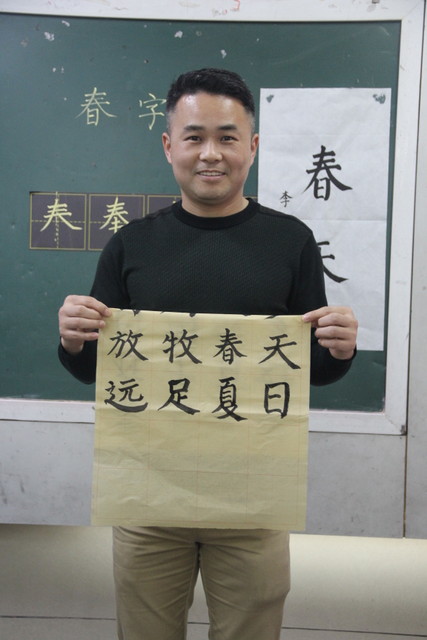 春字
奉
春天
李
放牧春天
远足夏日